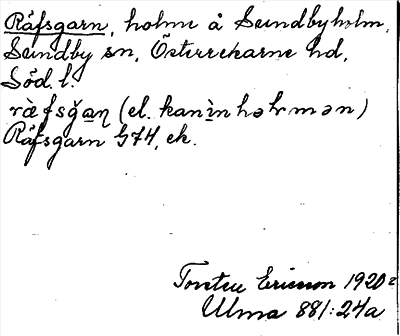 Räfsgarn, holme å Sundbyholm,
Sundby sn, Österrekarne hd,
Söd. l.
ràfsğaṉ (el. kanìnhəlmən)
Räfsgarn G74, ek.
Torsten Ericsson 1920
Ulma 881:24a